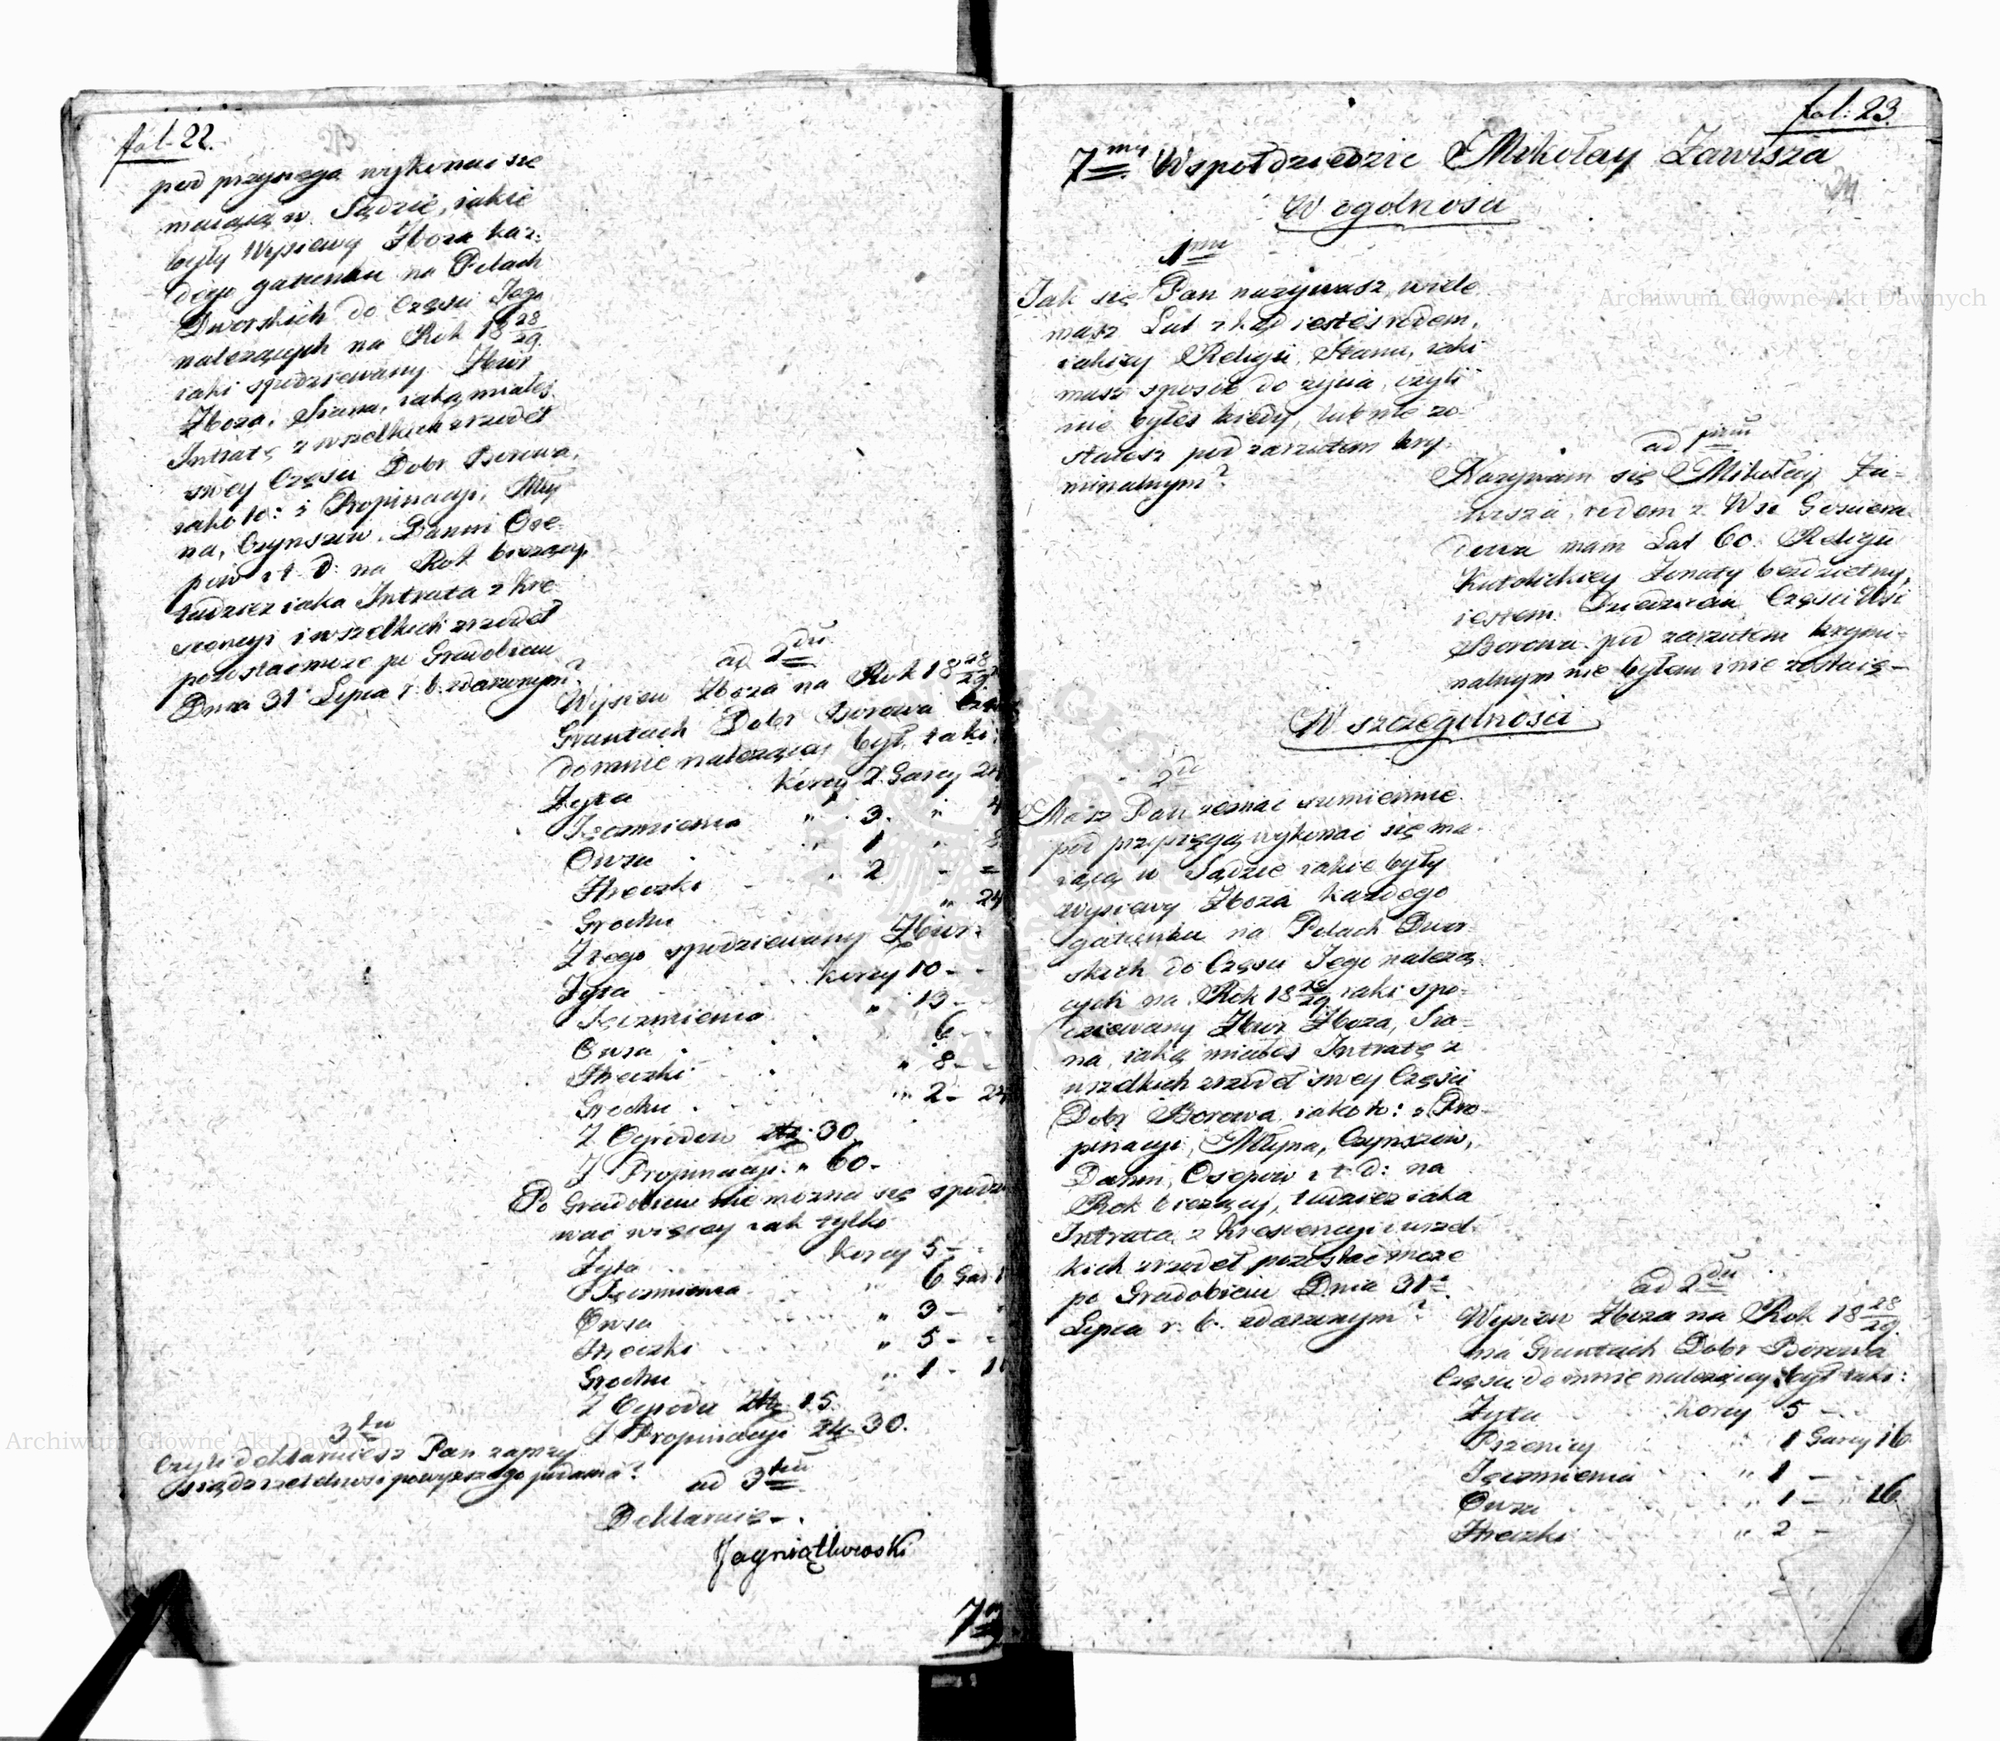 fol. 22.
pod przysięgą wykonać się
maiącą w Sądzie, iakie
były Wysiewy Zboża każ-
dego gatunku na Polach
Dworskich do Części Jego
należących na Rok 18 28/29
iaki spodziewany Zbiór
Zboża, Siana, iaką miałeś
Intratę z wszelkich źrzodeł
swey Części Dobr Borowa,
iako to: z Propinacyi, Mły-
na, Czynszów, Danin Ose-
pów i t. d: na Rok bieżący,
tudzież iaka Intrata z Kre-
scencyi i wszelkich źrzodeł
pozostać może po Gradobiciu
Dnia 31 Lipca r. b. zdarzonym?
ad 2du
Wysiew Zboża na Rok 18 28/29
Gruntach Dobr Borowa
do mnie należący był taki:
Żyta Korcy 2 Garcy 24
Jęczmienia " 3. " 4
Owsa 1
Hreczki " 2 - =
Grochu " 24
Z tego spodziewany Zbiór:
Żyta Korcy 10 -
Jęczmienia " 13 -
Owsa 6 -
Hreczki " 8 -
Grochu " 2 - 24
Z Ogrodu złp. 30.
Z Propinacyi " 60 -
Po Gradobiciu nie można się spodzie
wać więcey iak tylko
Żyta Korcy 5 -
Jęczmienia " 6 Gar
Owsa " 3 -
Hreczki " 5 -
Grochu " 1 -
Z Ogrodu złp. 15.
Z Propinacyi zł. 30.
3tio
Czyli deklaruiesz Pan zaprzy
siądz rzetelność powyższego podania?
ad 3tium
Deklaruię -
Jagniątkowski
7my
fol: 23.
7my Współdziedzic Mikołay Zawisza
W ogolności
1mo
Jak się Pan nazywasz, wiele
masz Lat zkąd iesteś rodem,
iakiey Religii, Stanu, iaki
masz sposób do życia, czyli
nie byłeś kiedy, lub nie zo-
staiesz pod zarzutem kry-
minalnym?
ad 1mum
Nazywam się Mikołay Za-
wisza, rodem z Wsi
mam Lat 60. Religii
Katolickiey Żonaty bezdzietny,
iestem Dziedzicem Części Wsi
Borowa pod zarzutem krymi-
nalnym nie byłem i nie zostaię -
W szczegulności
2do
Masz Pan zeznać sumiennie
pod przysięgą wykonać się ma-
iącą w Sądzie iakie były
Wysiewy Zboża każdego
gatunku na Polach Dwor-
skich do Części Jego należą-
cych na Rok 18 28/29 iaki spo-
dziewany Zbiór Zboża, Sia-
na, iaką miałeś Intratę z
wszelkich źrzodeł swey Części
Dobr Borowa iako to: z Pro-
pinacyi, Młyna, Czynszów,
Danin, Osepów i t. d: na
Rok bieżący, tudzież iaka
Intrata z Krescencyi i wszel-
kich źrzodeł pozostać może
po Gradobiciu Dnia 31
Lipca r. b. zdarzonym?
ad 2dum
Wysiew Zboża na Rok 18 28/29
na Gruntach Dobr Borowa
Części do mnie należącey był taki:
Żyta Korcy 5 -
Pszenicy 1 Garcy 16
Jęczmienia " 1 -
Owsa " 1 - " 16
Hreczki " 2 -
Archiwum Główne Akt Dawnych
Archiwum Główne Akt Dawnych